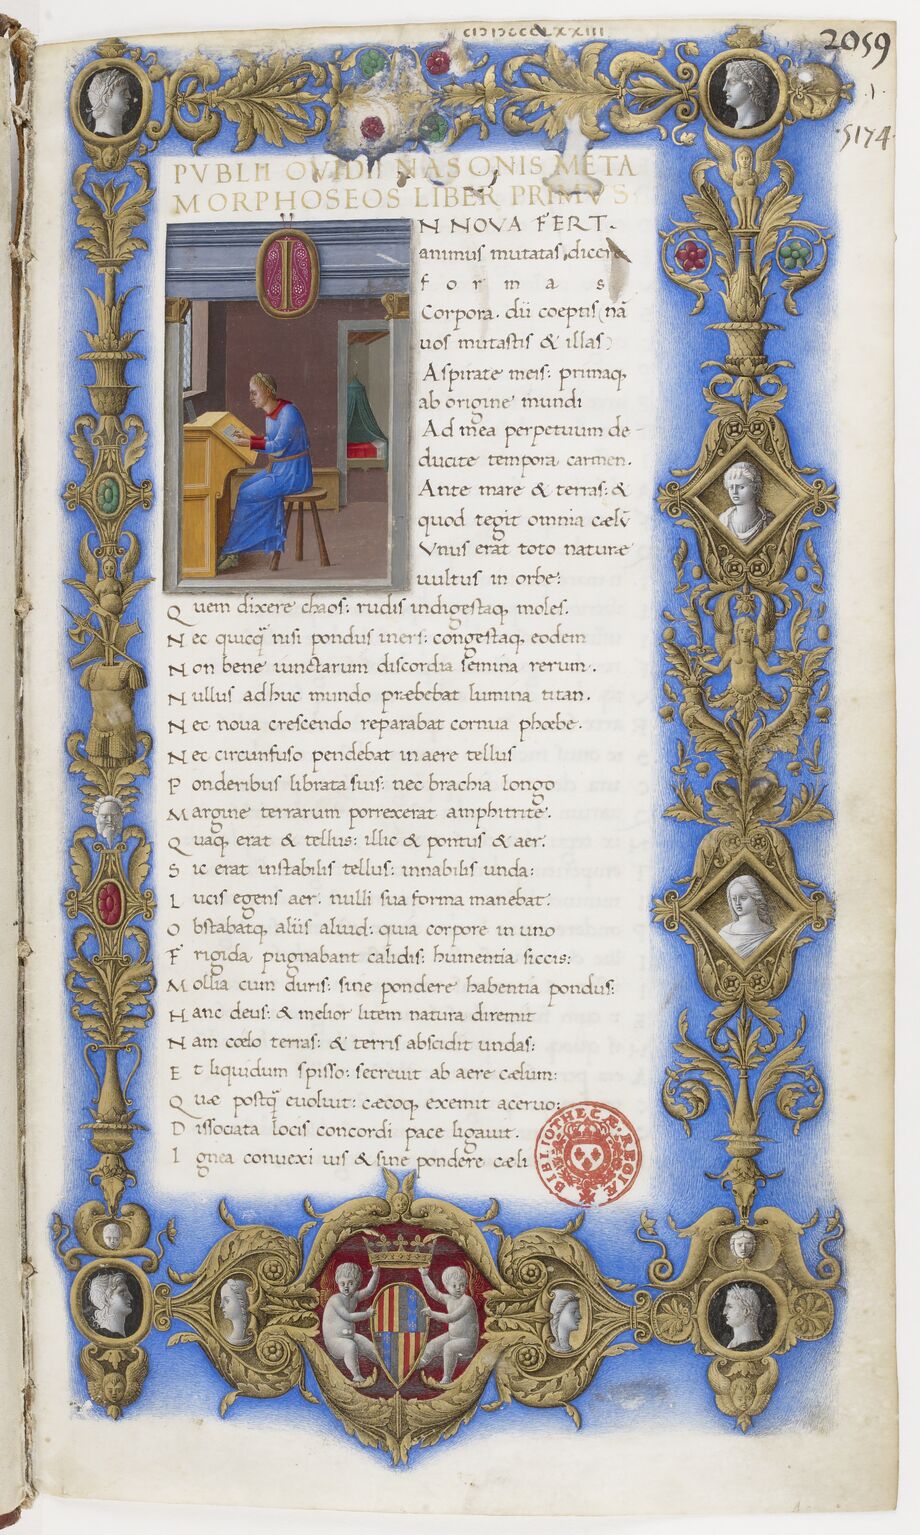 CIↃIↃCCCCLXXIII
2059
.1.
5174.
PVBLII OVIDII NASONIS META
MORPHOSEOS LIBER PRIMVS
I
N NOVA FERT.
animus mutatas dicere
formas
Corpora. dii coeptis (nā
uos mutastis & illas)
Aspirate meis: primaq;
ab origine mundi
Ad mea perpetuum de-
ducite tempora carmen.
Ante mare & terras: &
quod tegit omnia cælū
Vnus erat toto naturæ
uultus in orbe:
Quem dixere chaos: rudis indigestaq; moles.
Nec quicq̄ nisi pondus iners: congestaq; eodem
Non bene iunctarum discordia semina rerum.
Nullus adhuc mundo præbebat lumina titan.
Nec noua crescendo reparabat cornua phoebe.
Nec circunfuso pendebat in aere tellus
Ponderibus librata suis: nec brachia longo
Margine terrarum porrexerat amphitrite.
Quaq; erat & tellus: illic & pontus & aer.
Sic erat instabilis tellus: innabilis unda:
Lucis egens aer. nulli sua forma manebat.
Obstabatq; aliis aliud: quia corpore in uno
Frigida pugnabant calidis: humentia siccis:
Mollia cum duris: sine pondere habentia pondus:
Hanc deus: & melior litem natura diremit
Nam cœlo terras: & terris abscidit undas:
Et liquidum spisso: secreuit ab aere cælum:
Quæ postq̄ euoluit: cæcoq; exemit aceruo:
Dissociata locis concordi pace ligauit.
Ignea conuexi uis & sine pondere cæli
BIBLIOTHECÆ REGIÆ